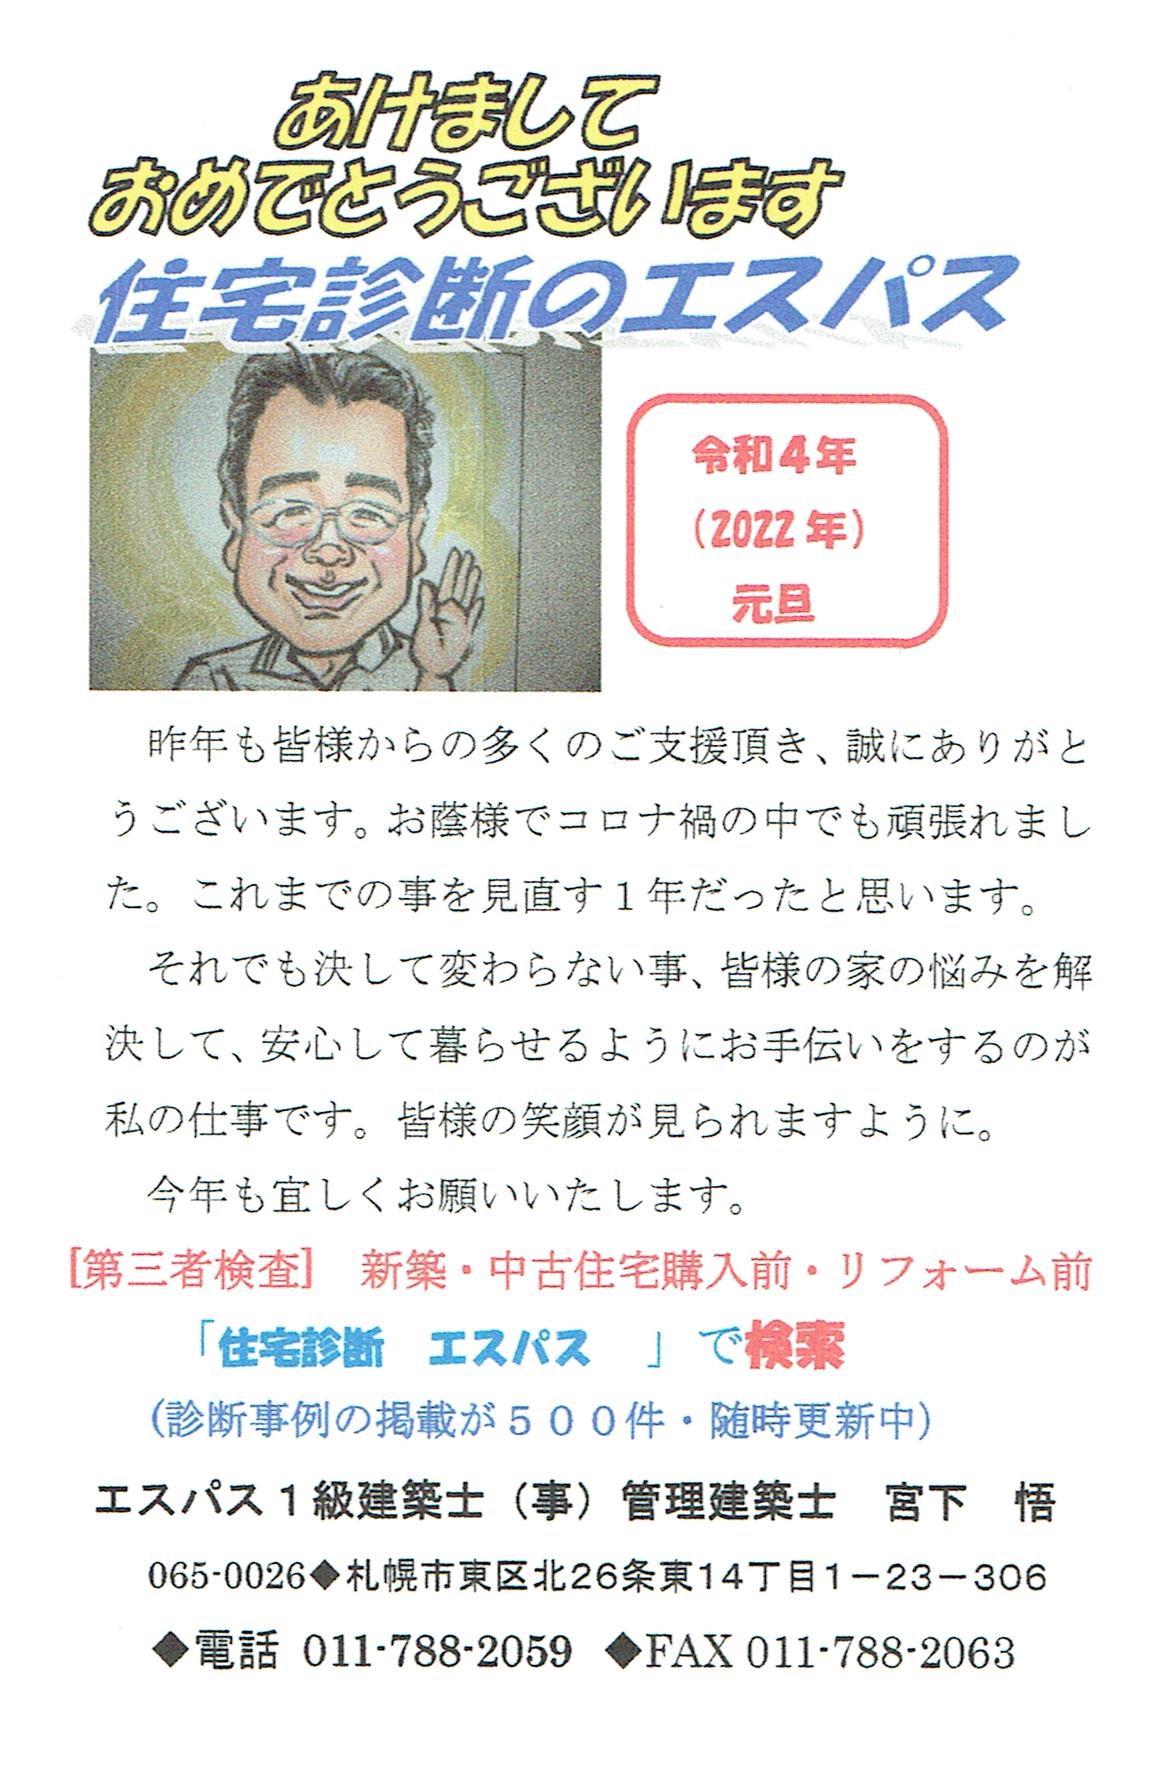 あけまして
おめでとうございます
住宅診断のエスパス
令和4年
（2022年）
元旦
昨年も皆様からの多くのご支援頂き、誠にありがと
うございます。お蔭様でコロナ禍の中でも頑張れまし
た。これまでの事を見直す１年だったと思います。
それでも決して変わらない事、皆様の家の悩みを解
決して、安心して暮らせるようにお手伝いをするのが
私の仕事です。皆様の笑顔が見られますように。
今年も宜しくお願いいたします。
[第三者検査]　新築・中古住宅購入前・リフォーム前
「住宅診断　エスパス　」で検索
（診断事例の掲載が５００件・随時更新中）
エスパス１級建築士（事）管理建築士　宮下　悟
065-0026◆札幌市東区北26条東14丁目1－23－306
◆電話 011-788-2059 ◆FAX 011-788-2063